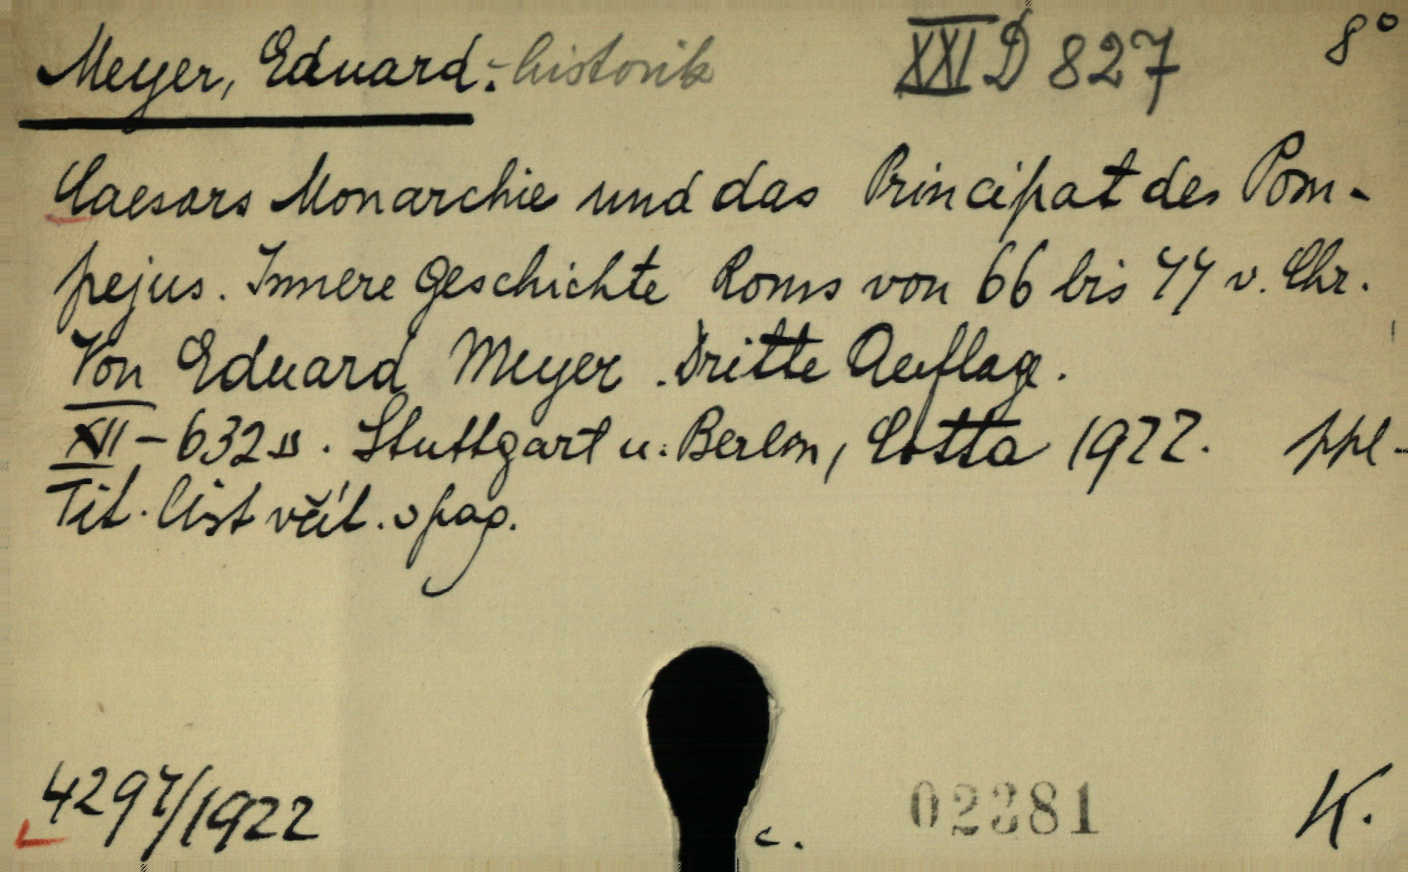 Meyer, Eduard. - historik XXI D 827 8°
Caesars Monarchie und das Principat des Pom-
pejus. Innere Geschichte Roms von 66 bis 44 v. Chr.
Von Eduard Meyer. Dritte Auflage.
XII - 632 s. Stuttgart u. Berlin, Cotta 1922. ppl-
Tit. list včít. v pag.
4294/1922 c. 02381 K.